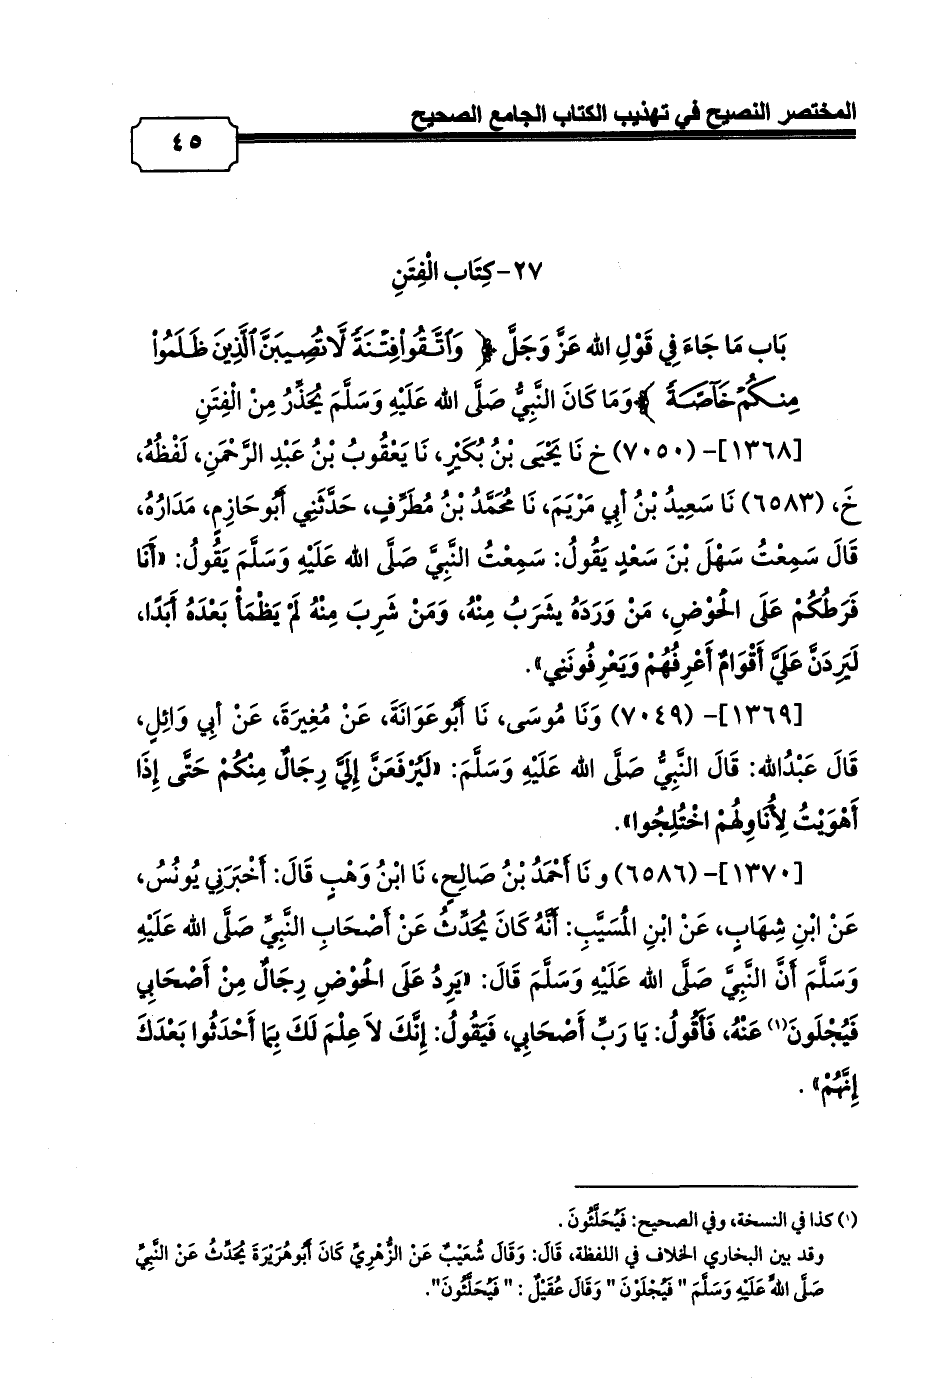 المختصر النصيح في تهذيب الكتاب الجامع الصحيح
٤٥
٢٧- كِتَاب الْفِتَنِ
بَاب مَا جَاءَ فِي قَوْلِ الله عَزَّ وَجَلَّ ﴿وَاتَّقُوا فِتْنَةً لَّا تُصِيبَنَّ الَّذِينَ ظَلَمُوا
مِنكُمْ خَاصَّةً﴾ وَمَا كَانَ النَّبِيُّ صَلَّى الله عَلَيْهِ وَسَلَّمَ يُحَذِّرُ مِنْ الْفِتَنِ
[١٣٦٨]- (٧٠٥٠) خ نَا يَحْيَى بْنُ بُكَيْرٍ، نَا يَعْقُوبُ بْنُ عَبْدِ الرَّحْمَنِ، لَفْظُهُ،
خَ، (٦٥٨٣) نَا سَعِيدُ بْنُ أبِي مَرْيَمَ، نَا مُحَمَّدُ بْنُ مُطَرِّفٍ، حَدَّثَنِي أَبُو حَازِمٍ، مَدَارُهُ،
قَالَ سَمِعْتُ سَهْلَ بْنَ سَعْدٍ يَقُولُ: سَمِعْتُ النَّبِيَّ صَلَّى الله عَلَيْهِ وَسَلَّمَ يَقُولُ: «أَنَا
فَرَطُكُمْ عَلَى الْحَوْضِ، مَنْ وَرَدَهُ يشَرَبُ مِنْهُ، وَمَنْ شَرِبَ مِنْهُ لَمْ يَظْمَأْ بَعْدَهُ أَبَدًا،
لَيَرِدَنَّ عَلَيَّ أَقْوَامٌ أَعْرِفُهُمْ وَيَعْرِفُونَنِي».
[١٣٦٩]- (٧٠٤٩) وَنَا مُوسَى، نَا أَبُو عَوَانَةَ، عَنْ مُغِيرَةَ، عَنْ أبِي وَائِلٍ،
قَالَ عَبْدُالله: قَالَ النَّبِيُّ صَلَّى الله عَلَيْهِ وَسَلَّمَ: «لَيُرْفَعَنَّ إِلَيَّ رِجَالٌ مِنْكُمْ حَتَّى إِذَا
أَهْوَيْتُ لِأُنَاوِلَهُمْ اخْتُلِجُوا».
[١٣٧٠]- (٦٥٨٦) و نَا أَحْمَدُ بْنُ صَالِحٍ، نَا ابْنُ وَهْبٍ قَالَ: أَخْبَرَنِي يُونُسُ،
عَنْ ابْنِ شِهَابٍ، عَنْ ابْنِ الْمُسَيَّبِ: أَنَّهُ كَانَ يُحَدِّثُ عَنْ أَصْحَابِ النَّبِيِّ صَلَّى الله عَلَيْهِ
وَسَلَّمَ أَنَّ النَّبِيَّ صَلَّى الله عَلَيْهِ وَسَلَّمَ قَالَ: «يَرِدُ عَلَى الْحَوْضِ رِجَالٌ مِنْ أَصْحَابِي
فَيُجْلَونَ(١) عَنْهُ، فَأَقُولُ: يَا رَبِّ أَصْحَابِي، فَيَقُولُ: إِنَّكَ لاَ عِلْمَ لَكَ بِمَا أَحْدَثُوا بَعْدَكَ
إِنَّهُمْ» .
(١) كذا في النسخة، وفي الصحيح: فَيُحَلَّئُونَ .
وقد بين البخاري الخلاف في اللفظة، قَالَ: وَقَالَ شُعَيْبٌ عَنْ الزُّهْرِيِّ كَانَ أَبُو هُرَيْرَةَ يُحَدِّثُ عَنْ النَّبِيِّ
صَلَّى اللهُ عَلَيْهِ وَسَلَّمَ " فَيُجْلَوْنَ " وَقَالَ عُقَيْلٌ : " فَيُحَلَّئُونَ".